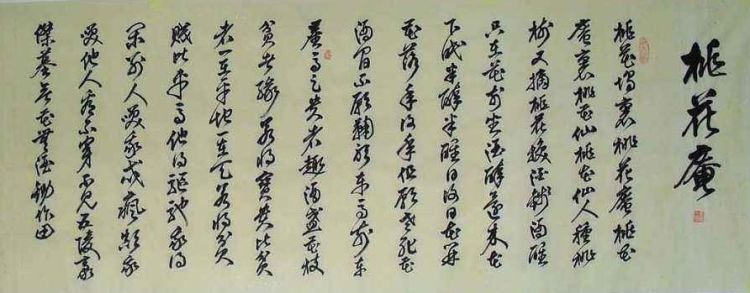 桃花庵
桃花塢裏桃花庵桃花
庵裏桃花仙桃花仙人種桃
樹又摘桃花換酒錢酒醒
只在花前坐酒醉還來花
下眠半醉半醒日復日花開
花落年復年但願老死花
酒間不願鞠躬車馬前車
塵馬足貴者趣酒盞花枝
貧者緣若將富貴比貧
者一在平地一在天若將貧
賤比車馬他得驅馳我得
閑別人笑我忒瘋顛我
笑他人看不穿不見五陵豪
傑墓無花無酒鋤作田